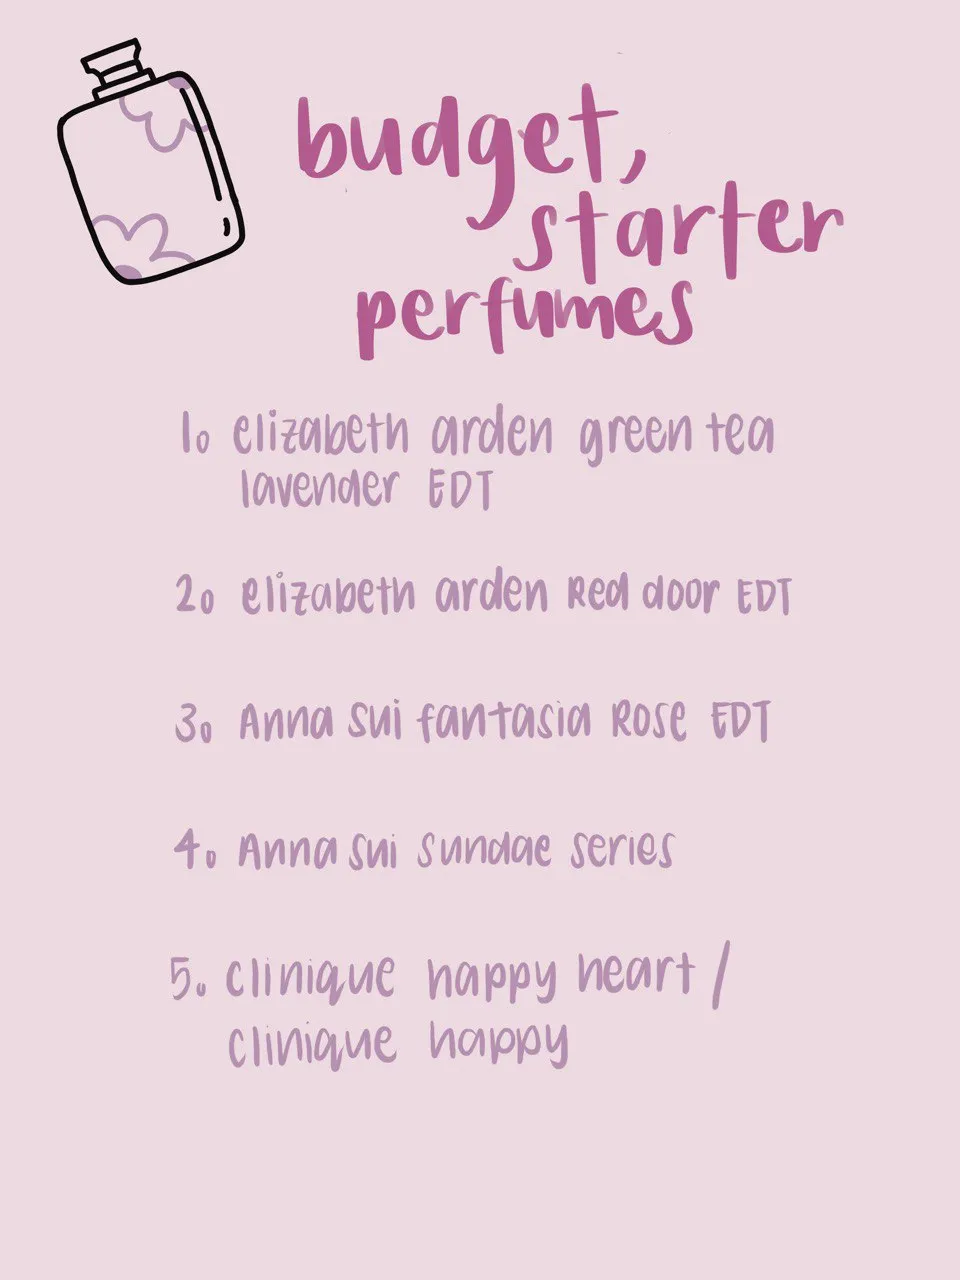 budget,
starter
perfumes
1. elizabeth arden green tea
lavender EDT
2. elizabeth arden Red door EDT
3. Anna Sui fantasia Rose EDT
4. Anna Sui Sundae series
5. clinique happy heart /
clinique happy